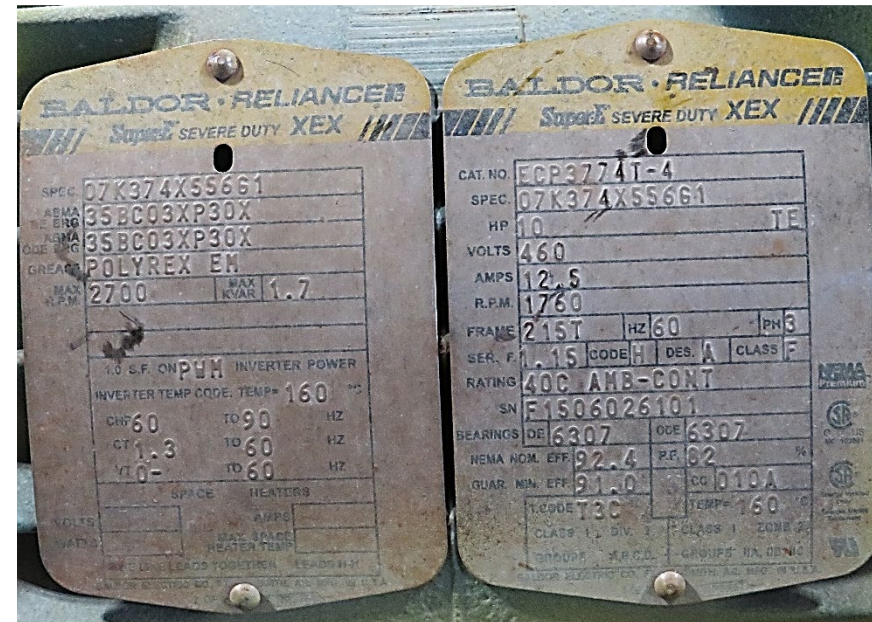 BALDOR · RELIANCE
Super-E SEVERE DUTY XEX
SPEC. 07K374X556G1
ABMA DE BRG 35BC03XP30X
ABMA ODE BRG 35BC03XP30X
GREASE POLYREX EM
MAX R.P.M. 2700 MAX KVAR 1.7
1.0 S.F. ON PWM INVERTER POWER
INVERTER TEMP CODE. TEMP= 160 °C
CHP 60 TO 90 HZ
CT 1.3 TO 60 HZ
VT 0- TO 60 HZ
SPACE HEATERS
VOLTS AMPS
WATTS MAX SPACE HEATER TEMP
LEADS TOGETHER LEADS H-H
BALDOR · RELIANCE
Super-E SEVERE DUTY XEX
CAT. NO. ECP3774T-4
SPEC. 07K374X556G1
HP 10 TE
VOLTS 460
AMPS 12.5
R.P.M. 1760
FRAME 215T HZ 60 PH 3
SER. F. 1.15 CODE H DES. A CLASS F
RATING 40C AMB-CONT
SN F1506026101
BEARINGS DE 6307 ODE 6307
NEMA NOM. EFF. 92.4 P.F. 82 %
GUAR. MIN. EFF. 91.0 CC 010A
T.CODE T3C TEMP= 160 °C
CLASS I DIV. 2 CLASS I ZONE 2
GROUPS A,B,C,D, GROUPS IIA, IIB, IIC
NEMA Premium